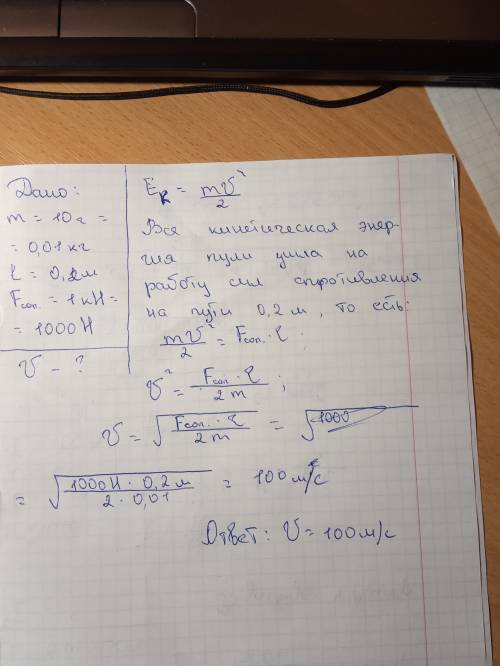 Дано:
m = 10 г =
= 0,01 кг
l = 0,2 м
Fсоп. = 1 кН =
= 1000 Н
v - ?
Eк = mv²/2
Вся кинетическая энер-
гия пули ушла на
работу сил спротивления
на пути 0,2 м, то есть:
mv²/2 = Fсоп. · l ;
v² = Fсоп. · l / 2m ;
v = √(Fсоп. · l / 2m) = √1000
= √(1000 Н · 0,2 м / 2 · 0,01) = 100 м/с
Ответ: v = 100 м/с